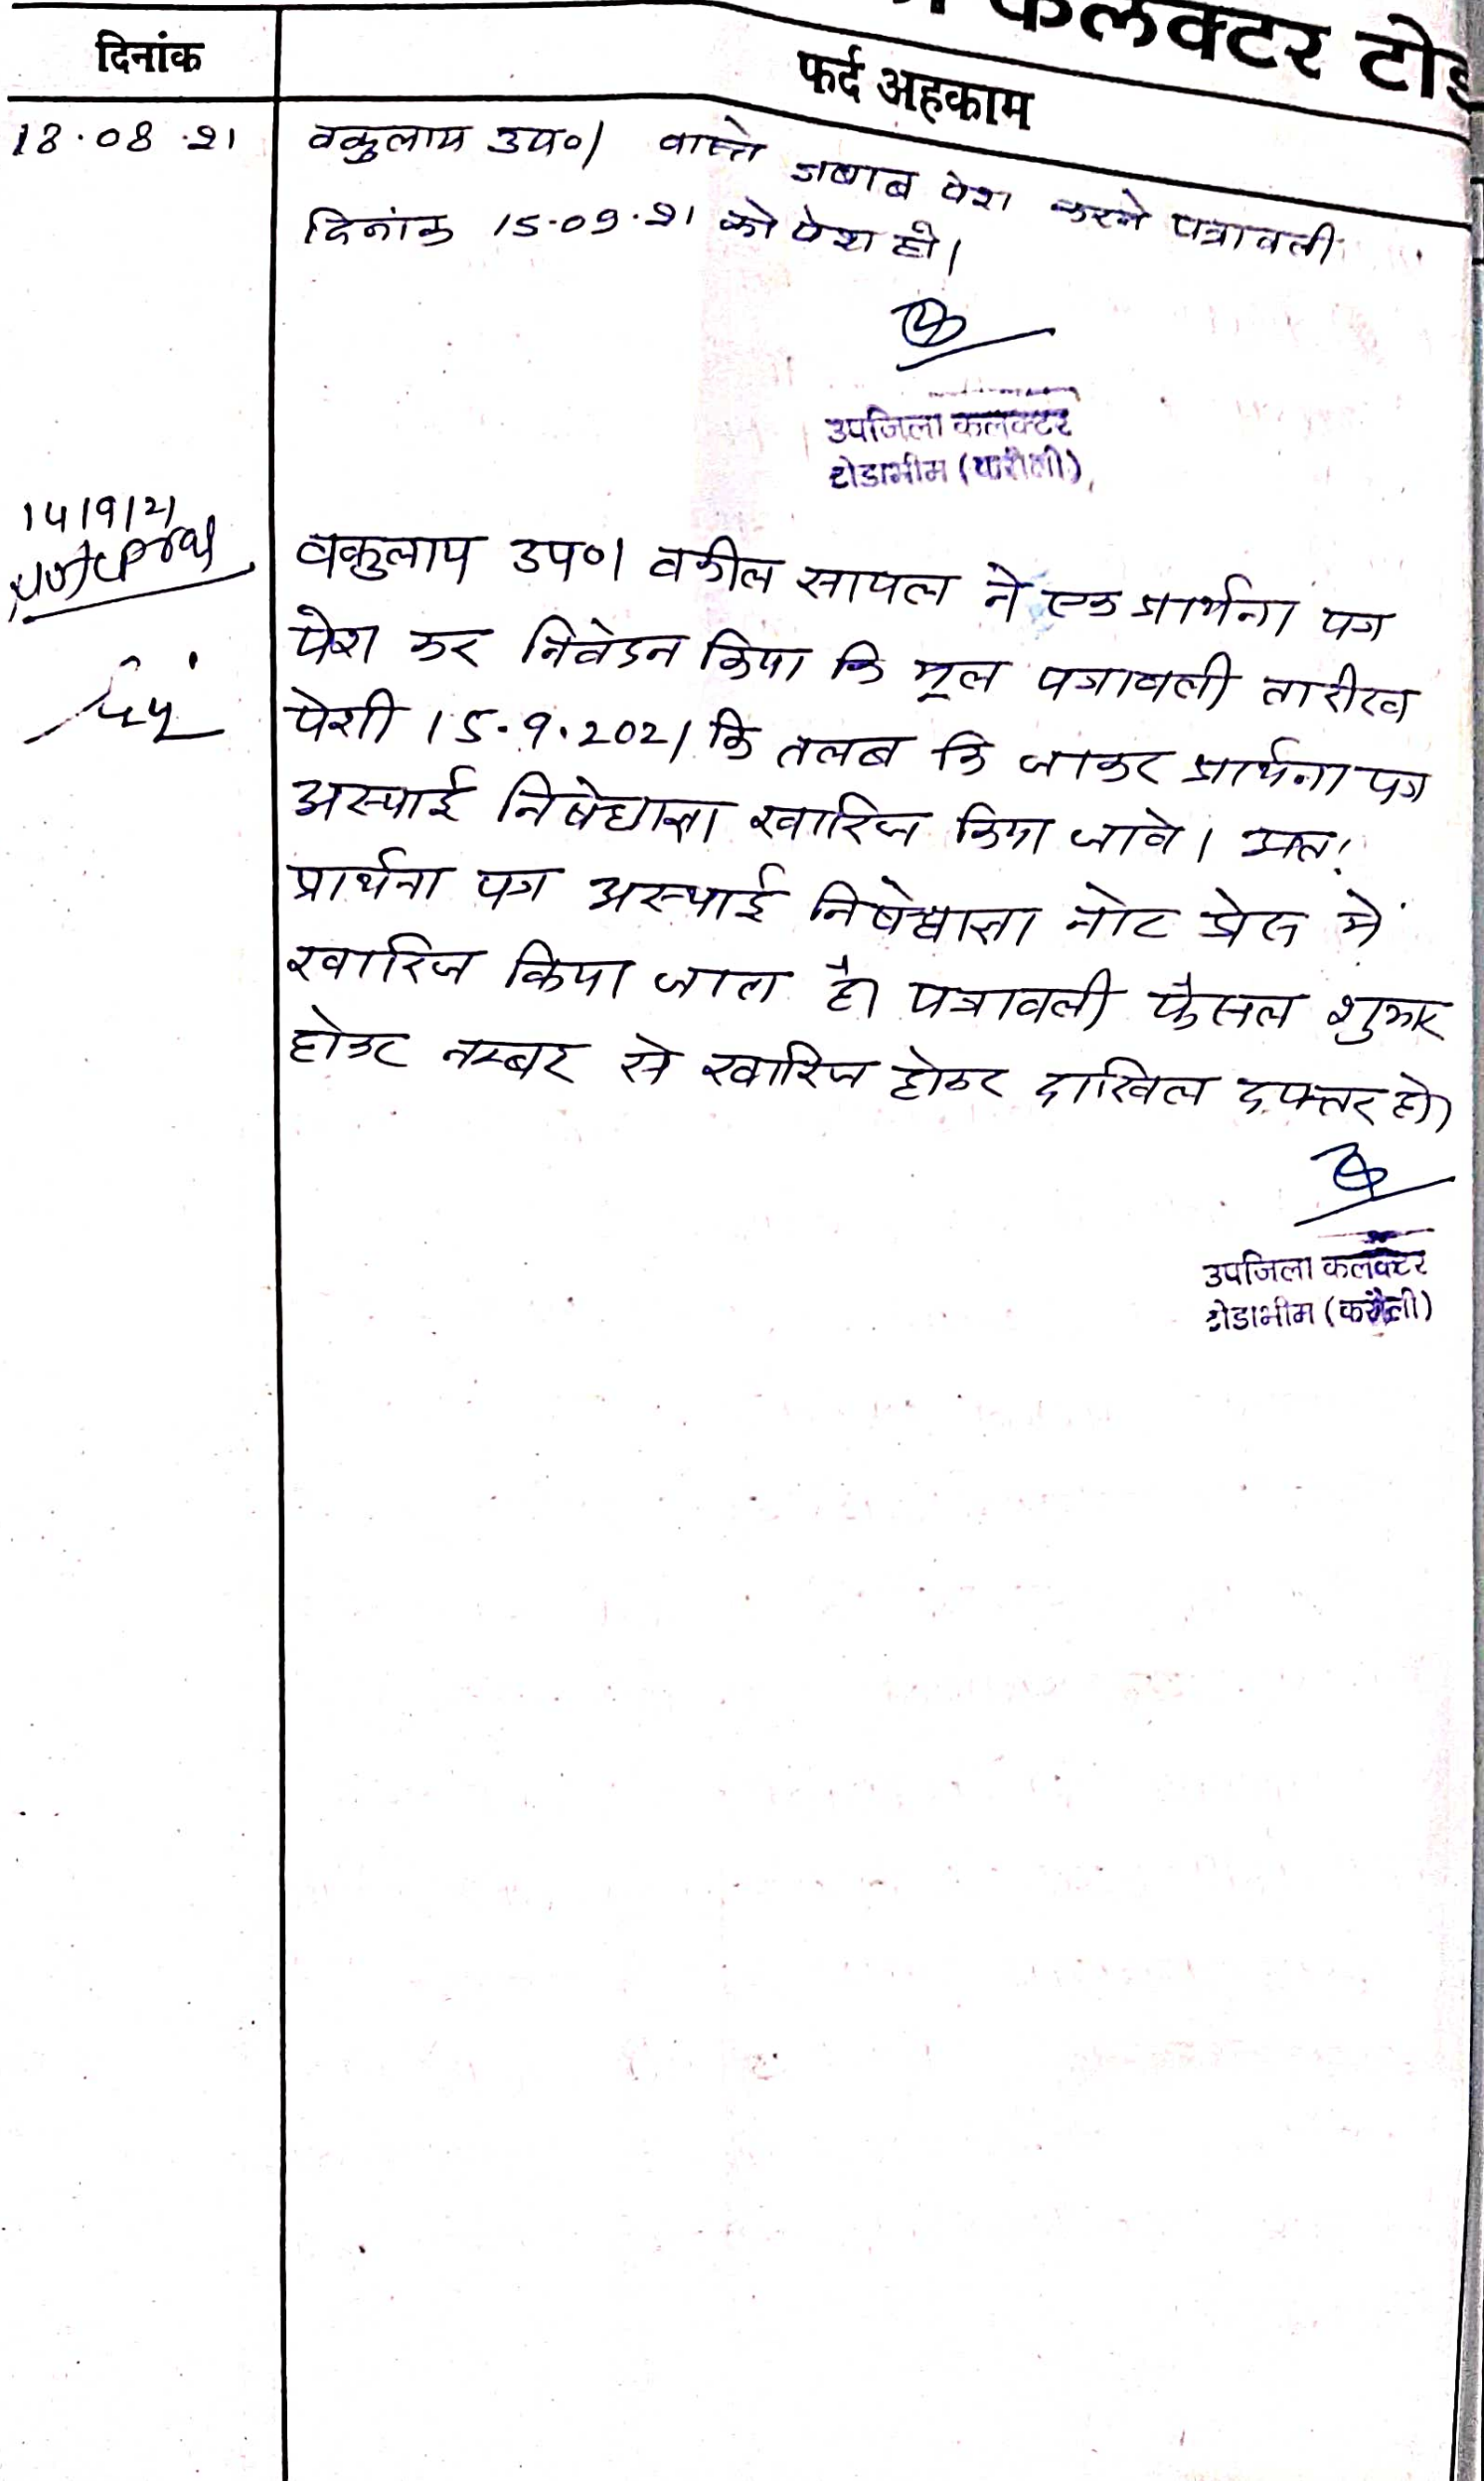 कलक्टर टोड
दिनांक
फर्द अहकाम
18.08.21
वकुलाय उप०। वास्ते जबाब पेश करने पत्रावली
दिनांक 15.09.21 को पेश हो।
उपजिला कलक्टर
टोडाभीम (करौली)
14/9/21
वकुलाय उप०। वकील सायल ने एक प्रार्थना पत्र
पेश कर निवेदन किया कि मूल पत्रावली तारीख
पेशी 15.9.2021 कि तलब कि जाकर प्रार्थना पत्र
अस्थाई निषेधाज्ञा खारिज किया जावे। अतः
प्रार्थना पत्र अस्थाई निषेधाज्ञा नोट प्रेस में
खारिज किया जाता है। पत्रावली फैसल शुमार
होकर नम्बर से खारिज होकर दाखिल दफ्तर हो।
उपजिला कलक्टर
टोडाभीम (करौली)